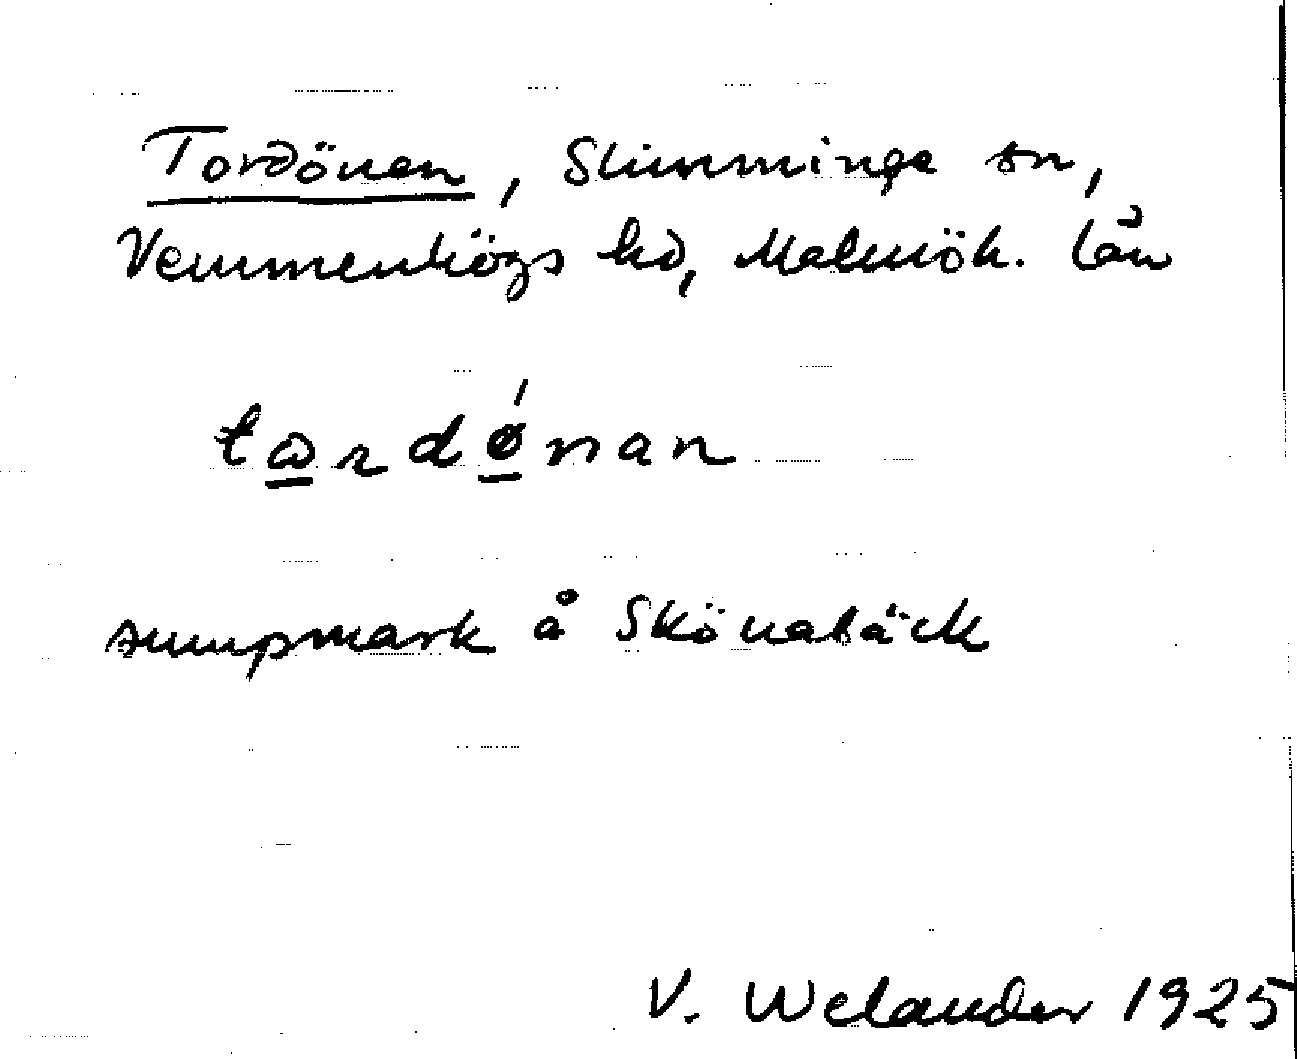 Tordönen, Slimminge sn,
Vemmenhögs hd, Malmöh. län
tω̲rdǿ̲nan
sumpmark å Skönabäck
V. Welander 1925